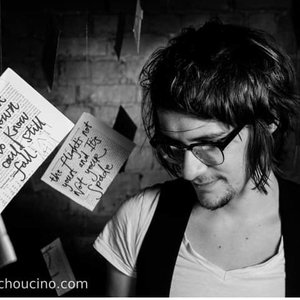 own
so know
could still
fall.
this flight not
yours and It's
Not your
choucino.com